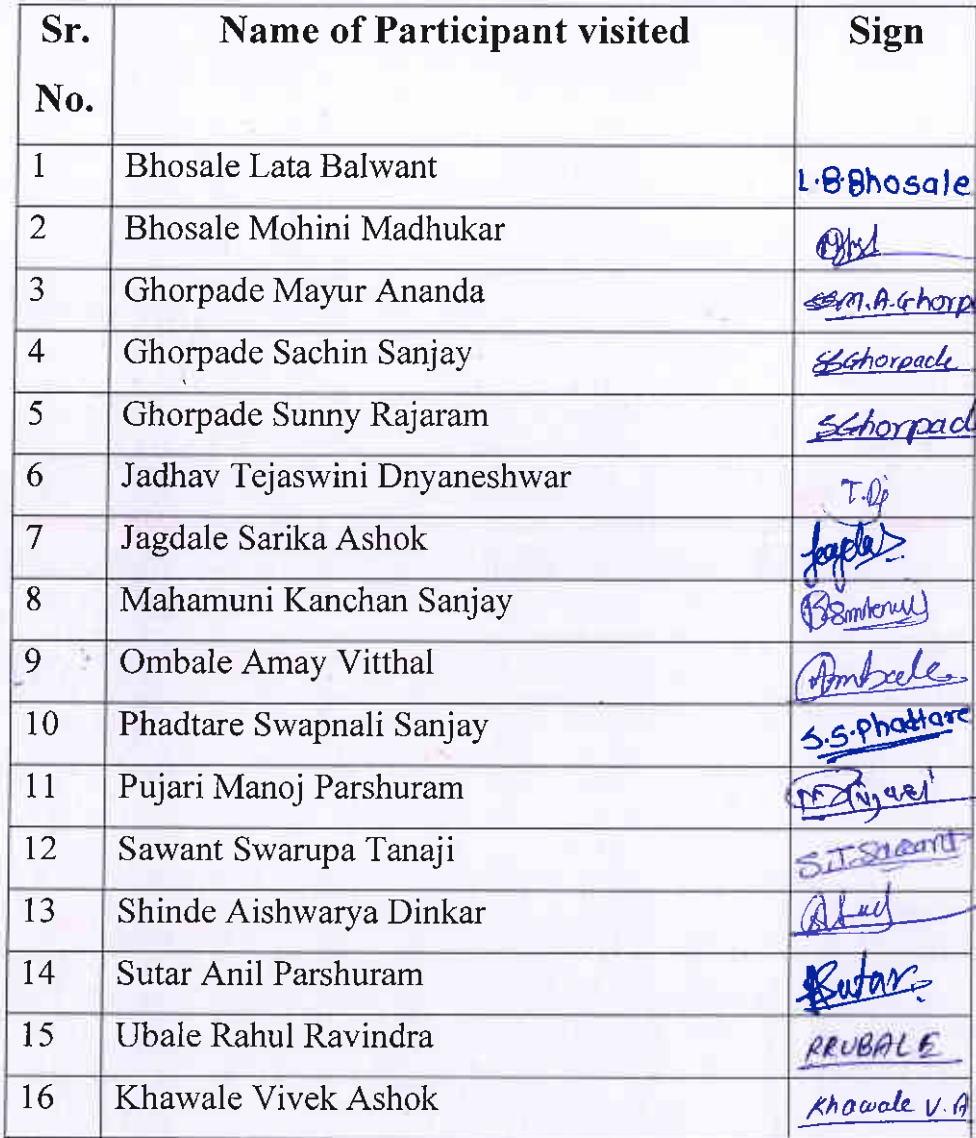 Sr. No. Name of Participant visited Sign
1 Bhosale Lata Balwant L.B.Bhosale
2 Bhosale Mohini Madhukar
3 Ghorpade Mayur Ananda M.A.Ghorp
4 Ghorpade Sachin Sanjay SSGhorpade
5 Ghorpade Sunny Rajaram SGhorpad
6 Jadhav Tejaswini Dnyaneshwar
7 Jagdale Sarika Ashok
8 Mahamuni Kanchan Sanjay
9 Ombale Amay Vitthal
10 Phadtare Swapnali Sanjay S.S.Phadtare
11 Pujari Manoj Parshuram
12 Sawant Swarupa Tanaji S.T.Sawant
13 Shinde Aishwarya Dinkar
14 Sutar Anil Parshuram
15 Ubale Rahul Ravindra RRUBALE
16 Khawale Vivek Ashok Khawale V.A